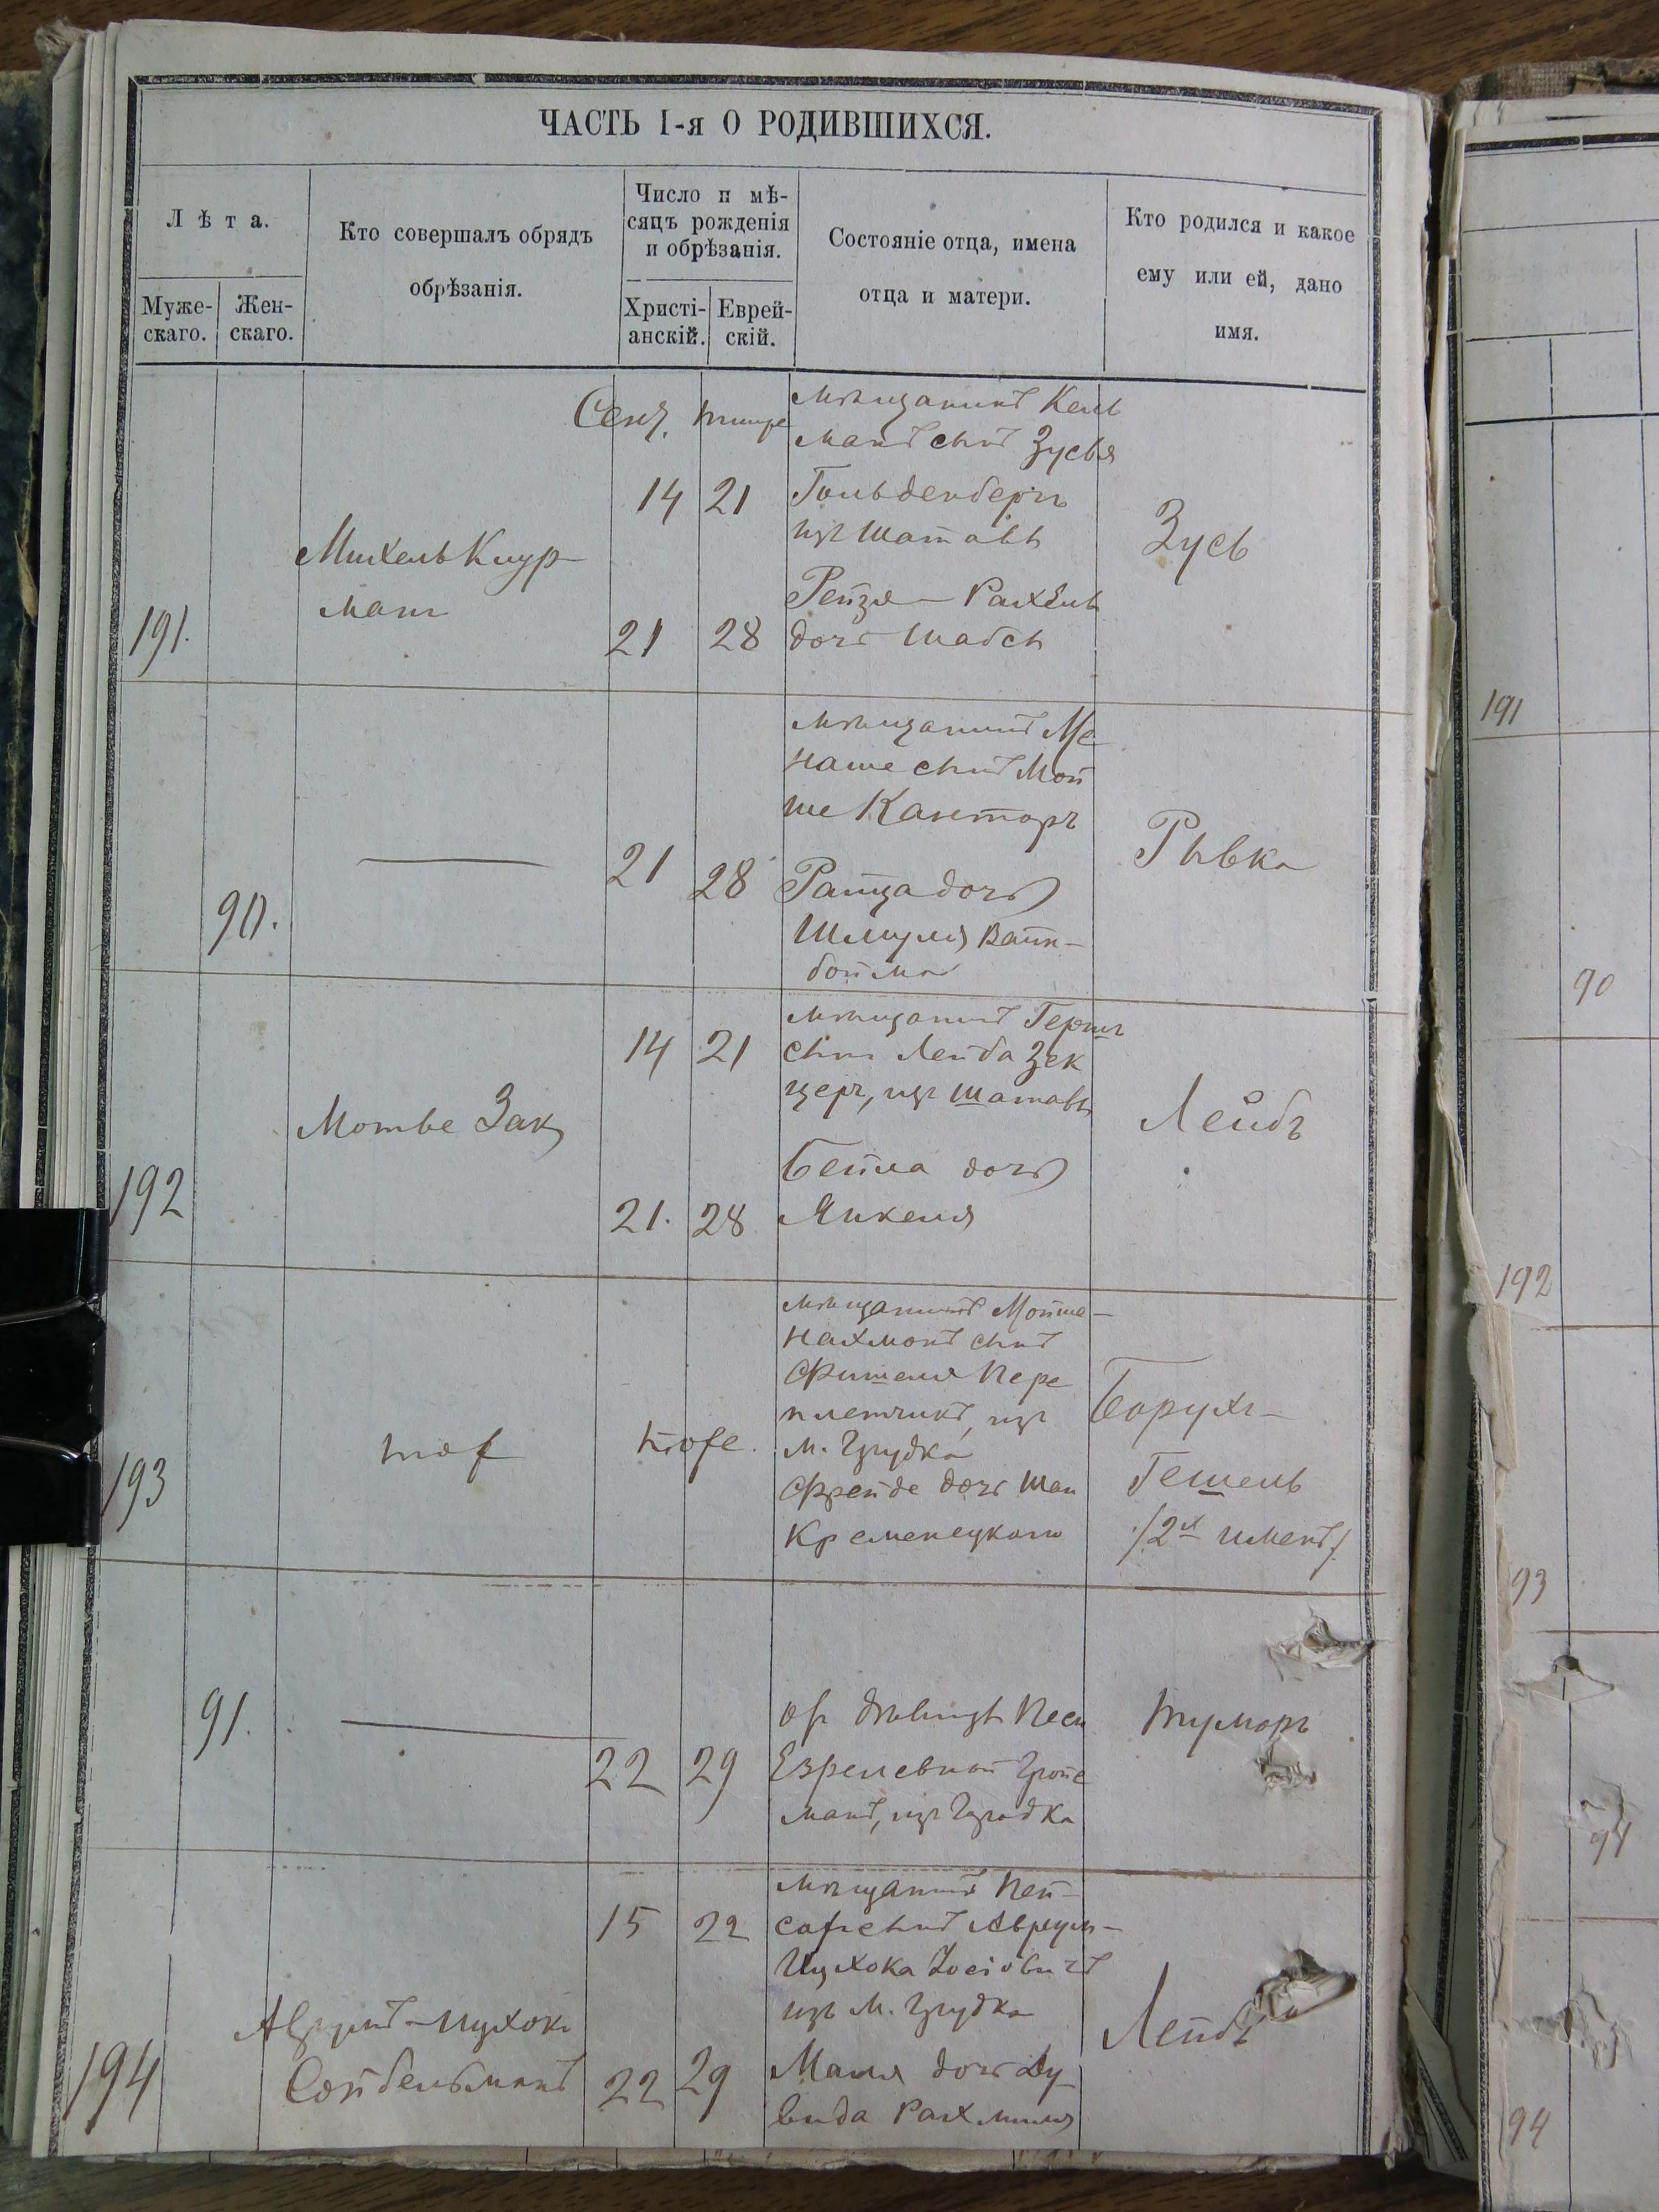 ЧАСТЬ I-я О РОДИВШИХСЯ.
Лѣта.
Муже-
скаго.
Жен-
скаго.
Кто совершалъ обрядъ
обрѣзанія.
Число и мѣ-
сяцъ рожденія
и обрѣзанія.
Христі-
анскій.
Еврей-
скій.
Состояніе отца, имена
отца и матери.
Кто родился и какое
ему или ей, дано
имя.
191.
Михель Клур
манъ
Сент. тишре
14 21
21 28
мѣщанинъ Кель
манъ сынъ Зусья
Гольденбергъ
изъ Шатавы
Рейзя - Рахель
дочь Шабсы
Зусь
90.
21 28
мѣщанинъ Ме
наше сынъ Мой
ше Канторъ
дочь
Шмуля Вайн-
бойма
Рывка
192
Мотье Закъ
14 21
21. 28
мѣщанинъ Гершъ
сынъ Лейба Зек
церъ, изъ Шатавы
Бейла дочь
Янкеля
Лейбъ
193
тоже
тоже.
мѣщанинъ Мойше-
Нахманъ сынъ
Фишеля Пере
плетчикъ, изъ
м. Грудка
Фрейде дочь
Кременецкаго
Борухъ-
Гешель
/2х именъ/
91.
22 29
от дѣвицы Песи
манъ, изъ Грудка
Тумаръ
194
Аврумъ-Ицхокъ
Сойбельманъ
15 22
22 29
мѣщанинъ Пей-
сахъ сынъ Аврумъ-
Ицхока Іосіовичъ
изъ м. Грудка
Маля дочь Ду
вида Рахмиля
Лейбъ
191
90
192
93
91
94